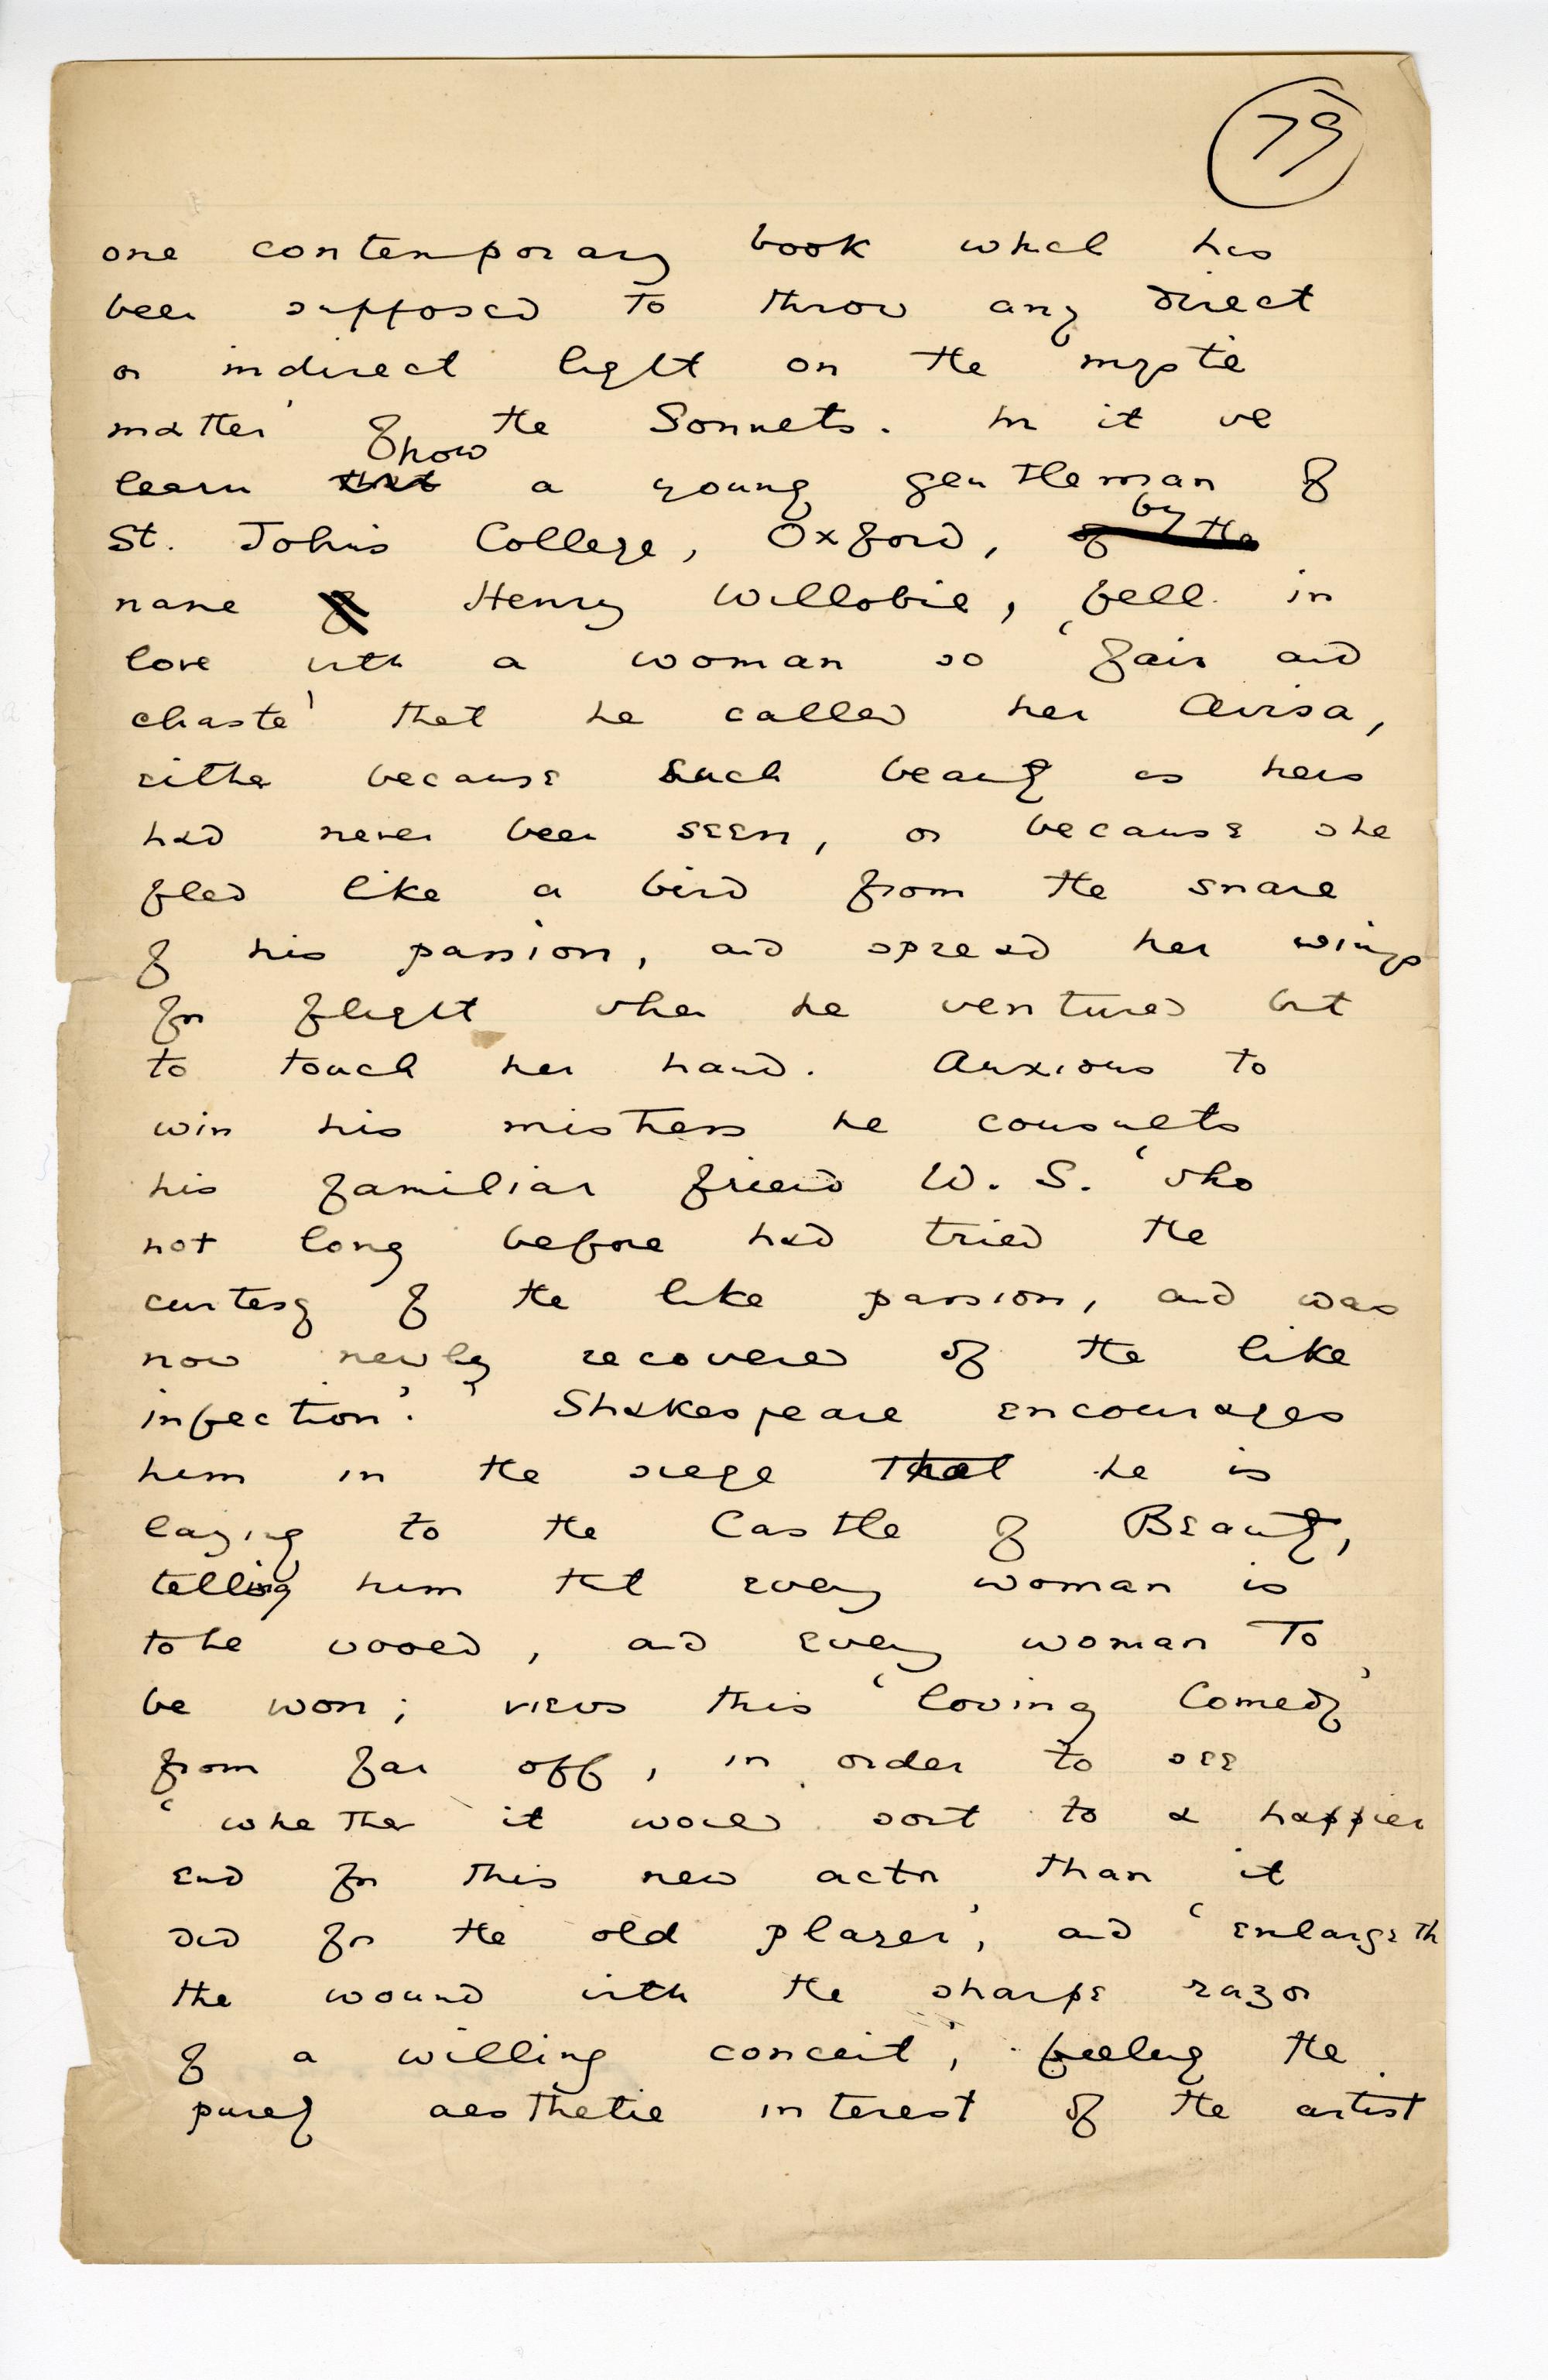 79
one contemporary book which has
been supposed to throw any direct
or indirect light on the 'mystic
matter' of the Sonnets. In it we
learn that how a young gentleman of
St. John's College, Oxford, of the by
name of Henry Willobie, fell in
love with a woman so 'fair and
chaste' that he called her Avisa,
either because such beauty as hers
had never been seen, or because she
fled like a bird from the snare
of his passion, and spread her wings
for flight when he ventured but
to touch her hand. Anxious to
win his mistress he consults
his familiar friend W. S. 'who
not long before had tried the
curtesy of the like passion, and was
now newly recovered of the like
infection'. Shakespeare encourages
him in the siege that he is
laying to the Castle of Beauty,
telling him that every woman is
to be wooed, and every woman to
be won; views this 'loving Comedy'
from far off, in order to see
'whether it would sort to a happier
end for this new actor than it
did for the old player', and 'enlargeth
the wound with the sharpe razor
of a willing conceit', feeling the
purely aesthetic interest of the artist